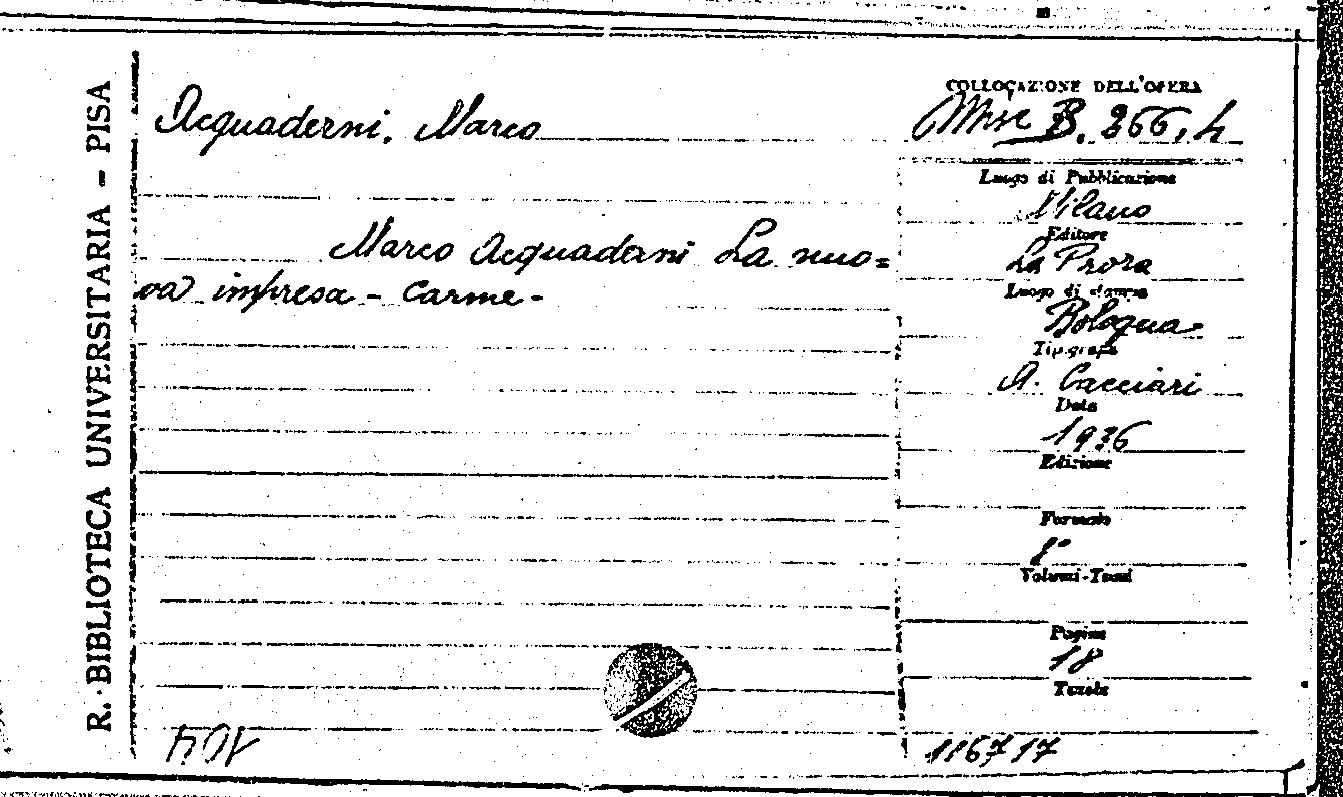 R. BIBLIOTECA UNIVERSITARIA – PISA
Acquaderni, Marco
Marco Acquaderni La nuo=
va impresa – Carme –
COLLOCAZIONE DELL'OPERA
Misc B. 266, h
Luogo di Pubblicazione
Milano
Editore
La Prora
Luogo di stampa
Bologna
Tipografo
A. Cacciari
Data
1936
Edizione
Formato
8°
Volumi-Tomi
Pagine
18
Tavole
116717